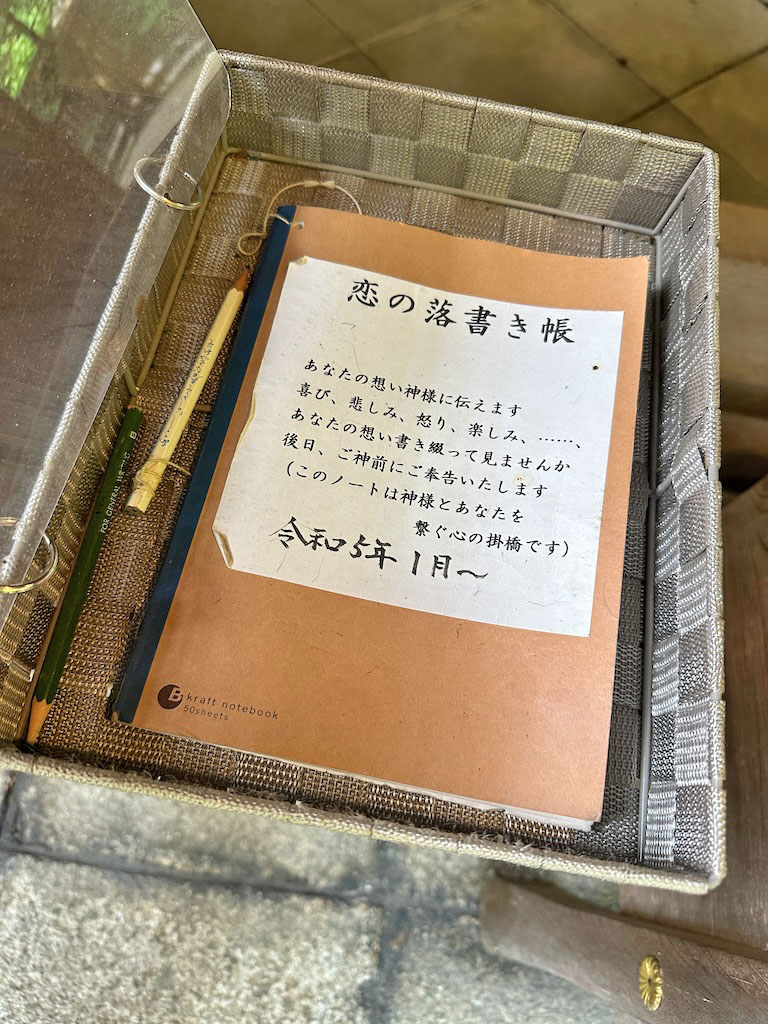 恋の落書き帳
あなたの想い神様に伝えます
喜び、悲しみ、怒り、楽しみ、……、
あなたの想い書き綴って見ませんか
後日、ご神前にご奉告いたします
(このノートは神様とあなたを
繋ぐ心の掛橋です)
令和5年 1月～
B kraft notebook
50sheets
FOR GENERAL